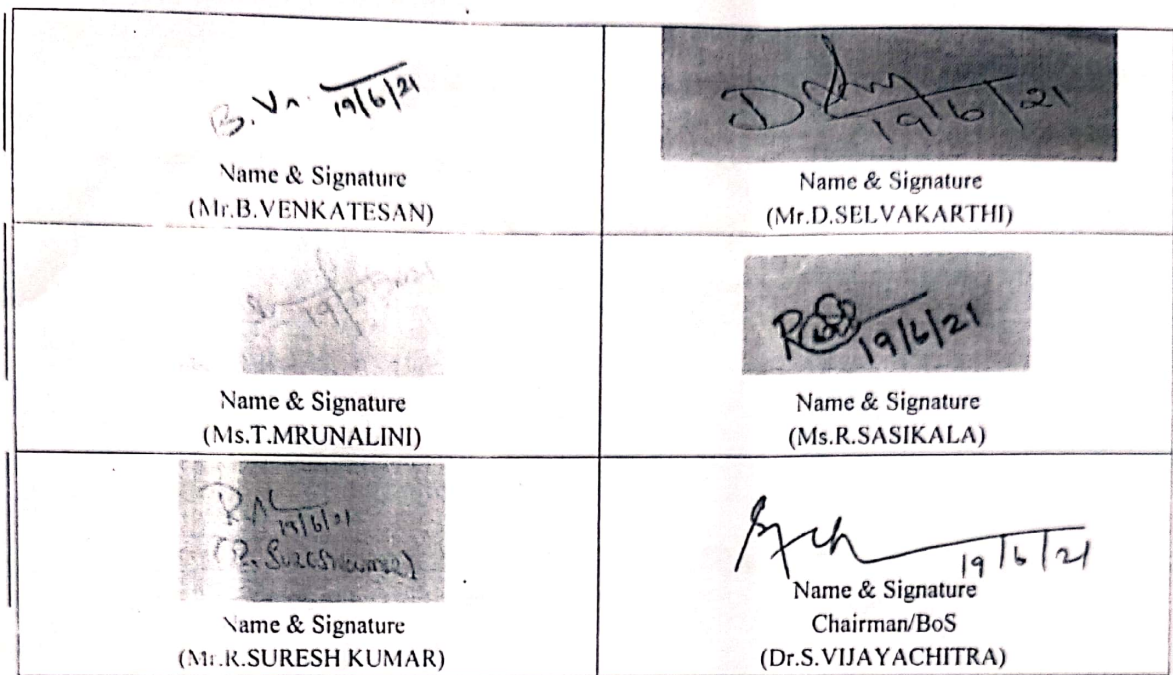 B. Vn. 19/6/21
Name & Signature
(Mr.B.VENKATESAN)
D 19/6/21
Name & Signature
(Mr.D.SELVAKARTHI)
19/6/2021
Name & Signature
(Ms.T.MRUNALINI)
R 19/6/21
Name & Signature
(Ms.R.SASIKALA)
19/6/21
(R. Sureshkumar)
Name & Signature
(Mr.R.SURESH KUMAR)
19/6/21
Name & Signature
Chairman/BoS
(Dr.S.VIJAYACHITRA)